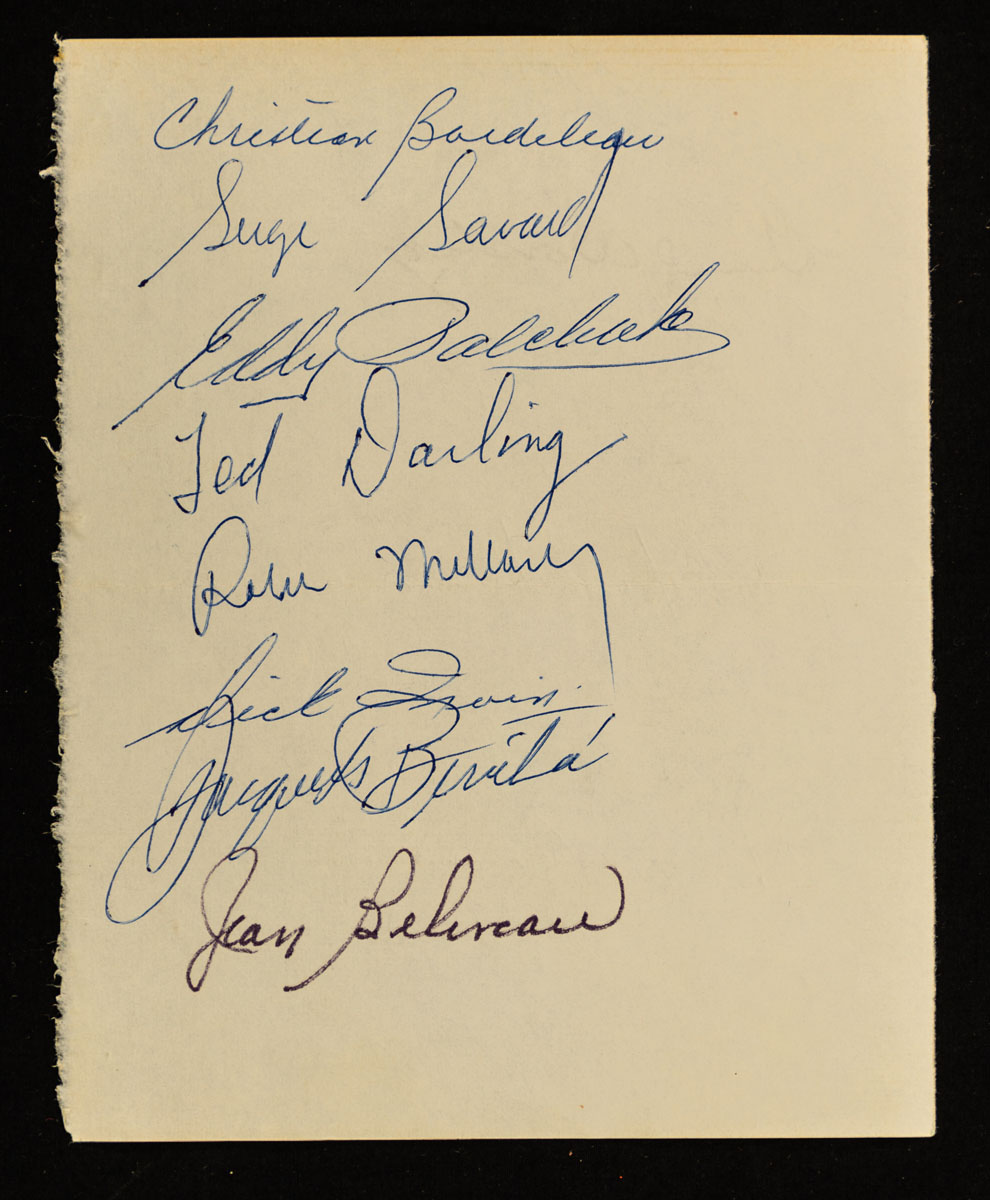 Christian Bordeleau
Serge Savard
Eddy Palchak
Ted Darling
Dick Irvin
Jacques
Jean Beliveau